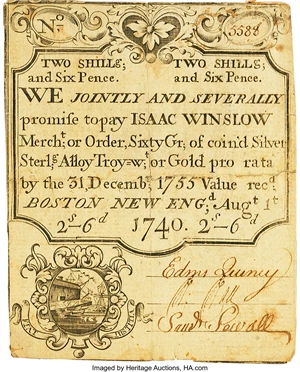 No. 5588
TWO SHILLs; TWO SHILLs;
and Six Pence. and Six Pence.
WE JOINTLY AND SEVERALLY
promise to pay ISAAC WINSLOW
Mercht; or Order, Sixty Gr; of coin'd Silver
Sterlg Alloy Troy=wt; or Gold pro rata
by the 31, Decembr, 1755 Value recd;
BOSTON NEW ENGd; Augt 1t
2s-6d 1740. 2s-6d
Edmd Quincy
Saml Sewall
Imaged by Heritage Auctions, HA.com